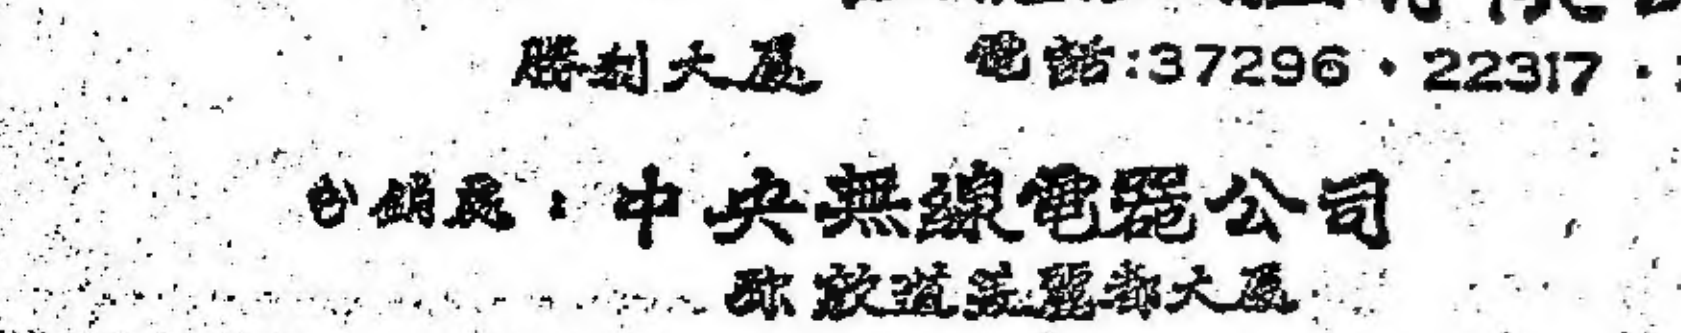 勝利大廈 電話:37296・22317・
分銷處：中央無線電器公司
弥敦道美麗都大廈